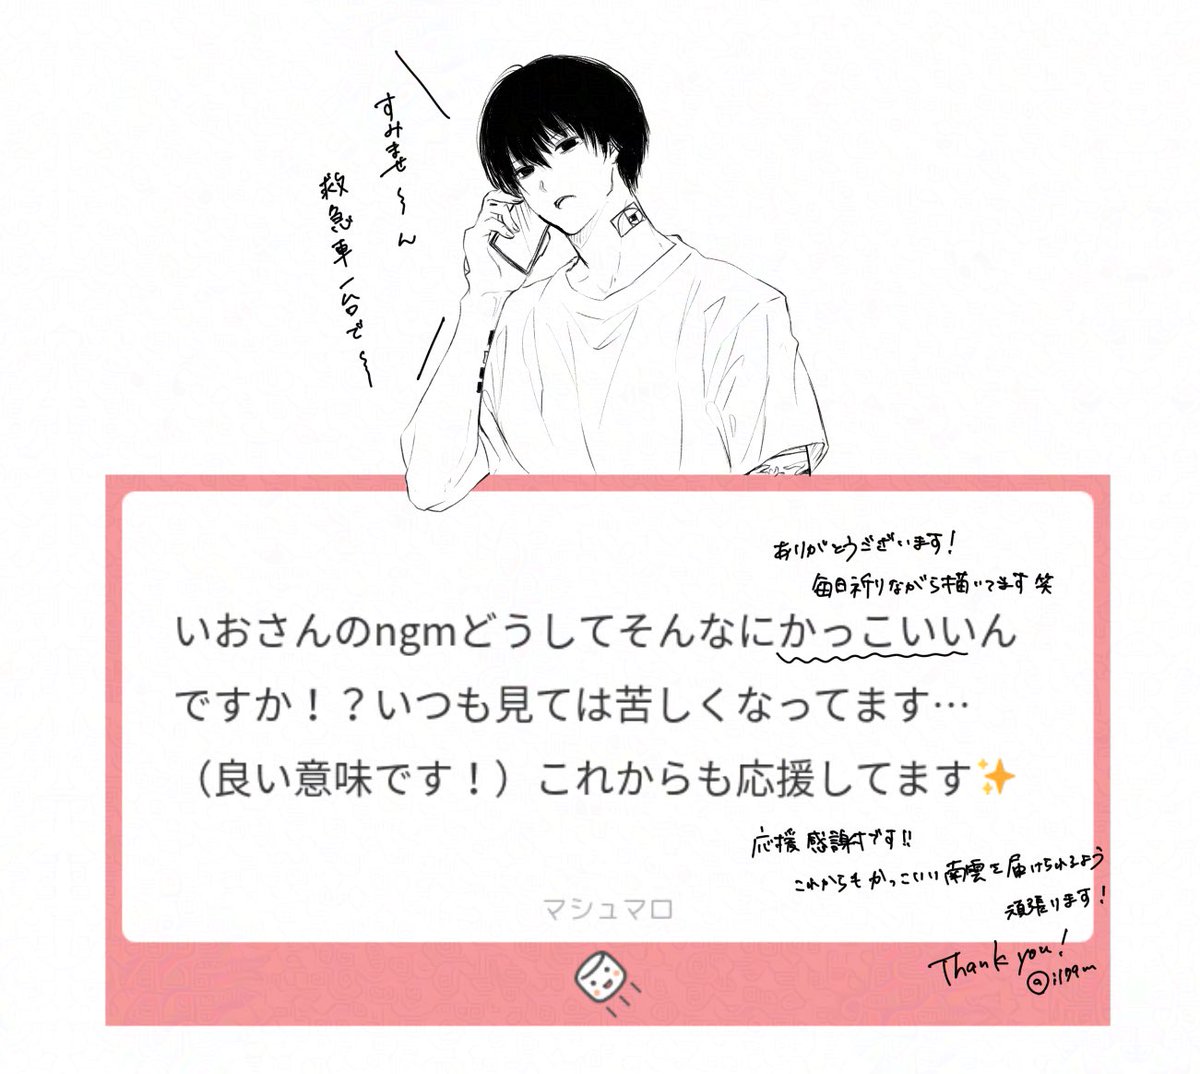 すみませ〜ん
救急車一台で〜
ありがとうございます!
毎日祈りながら描いてます笑
いおさんのngmどうしてそんなにかっこいいん
ですか！？いつも見ては苦しくなってます…
（良い意味です！）これからも応援してます✨
応援感謝です!!
これからもかっこいい南雲を届けられるよう
頑張ります!
マシュマロ
Thank you!